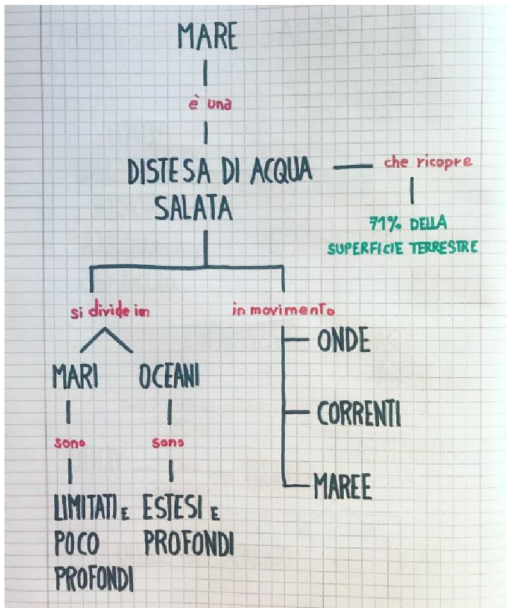 MARE
è una
DISTESA DI ACQUA
SALATA
che ricopre
71% DELLA
SUPERFICIE TERRESTRE
si divide in
MARI
OCEANI
sono
sono
LIMITATI E
POCO
PROFONDI
ESTESI E
PROFONDI
in movimento
ONDE
CORRENTI
MAREE